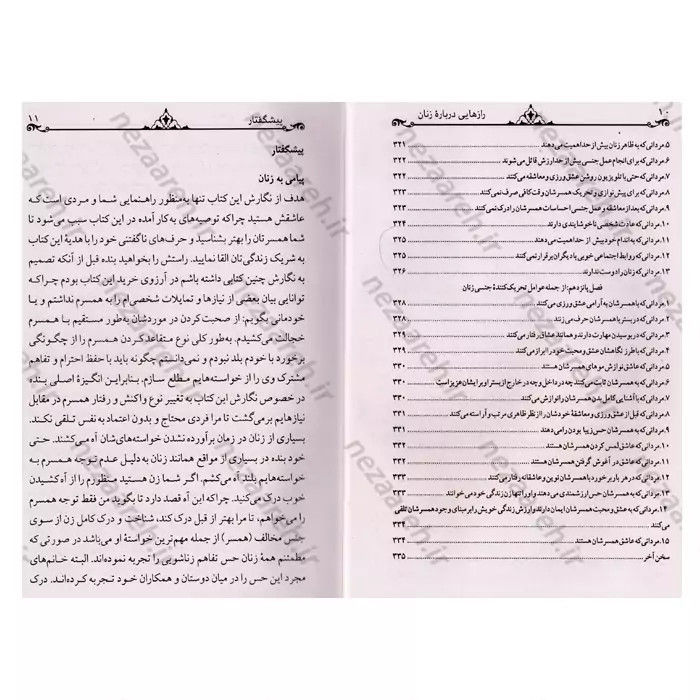 ۱۰ رازهایی دربارهٔ زنان
۵.مردانی که به ظاهر زنان بیش از حد اهمیت می‌دهند ۳۲۱
۶.مردانی که برای انجام عمل جنسی بیش از حد ارزش قائل می‌شوند ۳۲۲
۷.مردانی که حتی با تلویزیون روشن عشق ورزی و معاشقه می‌کنند ۳۲۲
۸.مردانی که برای پیش نوازی و تحریک همسرشان وقت کافی صرف نمی‌کنند ۳۲۳
۹.مردانی که بعد از معاشقه و عمل جنسی احساسات همسرشان را درک نمی‌کنند ۳۲۳
۱۰.مردانی که عادت شخصی ناخوشایندی دارند ۳۲۴
۱۱.مردانی که به اندام خود بیش از حد اهمیت می‌دهند ۳۲۵
۱۲.مردانی که روابط اجتماعی خوبی با دیگران برقرار نمی‌کنند ۳۲۵
۱۳.مردانی که زنان را دوست ندارند ۳۲۶
فصل پانزدهم: از جمله عوامل تحریک‌کنندهٔ جنسی زنان
۱.مردانی که با همسرشان به آرامی عشق ورزی می‌کنند ۳۲۸
۲.مردانی که در بستر با همسرشان حرف می‌زنند ۳۲۸
۳.مردانی که در بوسیدن مهارت دارند و همانند عشاق رفتار می‌کنند ۳۲۹
۴.مردانی که با طرز نگاهشان عشق و محبت خود را ابراز می‌کنند ۳۲۹
۵.مردانی که عاشق نوازش موهای همسرشان هستند ۳۳۰
۶.مردانی که به همسرشان ثابت می‌کنند چه در داخل و چه در خارج از بستر او برایشان عزیز است ۳۳۰
۷.مردانی که با آشنایی کامل بدن همسرشان را نوازش می‌کنند ۳۳۰
۸.مردانی که قبل از عشق ورزی و معاشقهٔ خودشان را از نظر ظاهری مرتب و آراسته می‌کنند ۳۳۱
۹.مردانی که به همسرشان حس زیبا بودن را می‌دهند ۳۳۱
۱۰.مردانی که عاشق لمس کردن همسرشان هستند ۳۳۲
۱۱.مردانی که عاشق در آغوش گرفتن همسرشان هستند ۳۳۲
۱۲.مردانی که در هر بار برخورد با همسرشان نوین و عاشقانه رفتار می‌کنند ۳۳۳
۱۳.مردانی که به همسرشان حس ارزشمندی می‌دهند و او را تنها زن زندگی خود می‌خوانند ۳۳۳
۱۴.مردانی که به عشق و محبت همسرشان ایمان دارند و ارزش زندگی خویش را بر مبنای وجود همسرشان تلقی
می‌کنند ۳۳۴
۱۵.مردانی که عاشق همسرشان هستند ۳۳۴
سخن آخر ۳۳۵
پیشگفتار ۱۱
پیشگفتار
پیامی به زنان
هدف از نگارش این کتاب تنها به‌منظور راهنمایی شما و مردی است که
عاشقش هستید چراکه توصیه‌های به‌کار آمده در این کتاب سبب می‌شود تا
شما همسرتان را بهتر بشناسید و حرف‌های ناگفتنی خود را با هدیهٔ این کتاب
به شریک زندگی‌تان القا نمایید. راستش را بخواهید بنده قبل از آنکه تصمیم
به نگارش چنین کتابی داشته باشم در آرزوی خرید این کتاب بودم چراکه
توانایی بیان بعضی از نیازها و تمایلات شخصی‌ام را به همسرم نداشتم و یا
خودمانی بگویم: از صحبت کردن در موردشان به‌طور مستقیم با همسرم
خجالت می‌کشیدم. به‌طور کلی نوع متقاعد کردن همسرم را از چگونگی
برخورد با خودم بلد نبودم و نمی‌دانستم چگونه باید با حفظ احترام و تفاهم
مشترک وی را از خواسته‌هایم مطلع سازم. بنابراین انگیزهٔ اصلی بنده
در خصوص نگارش این کتاب به تغییر نوع واکنش و رفتار همسرم در مقابل
نیازهایم برمی‌گشت تا مرا فردی محتاج و بدون اعتماد به نفس تلقی نکند.
بسیاری از زنان در زمان برآورده نشدن خواسته‌های‌شان آه می‌کشند. حتی
خود بنده در بسیاری از مواقع همانند زنان به‌دلیل عدم توجه همسرم به
خواسته‌هایم بلند آه می‌کشم. اگر شما زن هستید منظورم را از آه کشیدن
خوب درک می‌کنید. چراکه این آه قصد دارد تا بگوید من فقط توجه همسرم را
می‌خواهم، تا مرا بهتر از قبل درک کند، شناخت و درک کامل زن از سوی
جنس مخالف (همسر) از جمله مهم‌ترین خواستهٔ او می‌باشد در صورتی که
مطمئنم همهٔ زنان حس تفاهم زناشویی را تجربه نکرده‌اند. البته خانم‌های
مجرد این حس را در میان دوستان و همکاران خود تجربه کرده‌اند. درک
nezaareh.ir